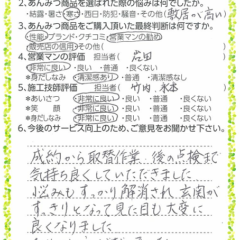 2.あんみつ商品を選ばれた際の悩みは何でしたか。
・結露・暑さ・寒さ・西日・防犯・騒音・その他(敷居が高い)
3.あんみつ商品をご購入頂いた最終判断は何ですか。
・性能・ブランド・クチコミ・営業マンの勧め
・販売店の信用・その他(
4.営業マンの評価 担当者( 岩田
・非常に良い・良い・普通・良くない
*身だしなみ ・清潔感あり・普通・清潔感なし
5.施工技師評価 担当者( 竹内、水本
*あいさつ ・非常に良い・良い・普通・良くない
*笑 顔 ・非常に良い・良い・普通・良くない
*身だしなみ ・非常に良い・良い・普通・良くない
6.今後のサービス向上のため、ご意見をお聞かせ下さい。
成約から取替作業 後の点検まで
気持ち良くしていただきました
悩みもすっかり解消され玄関が
すっきりとなって見た目も大変に
良くなりました